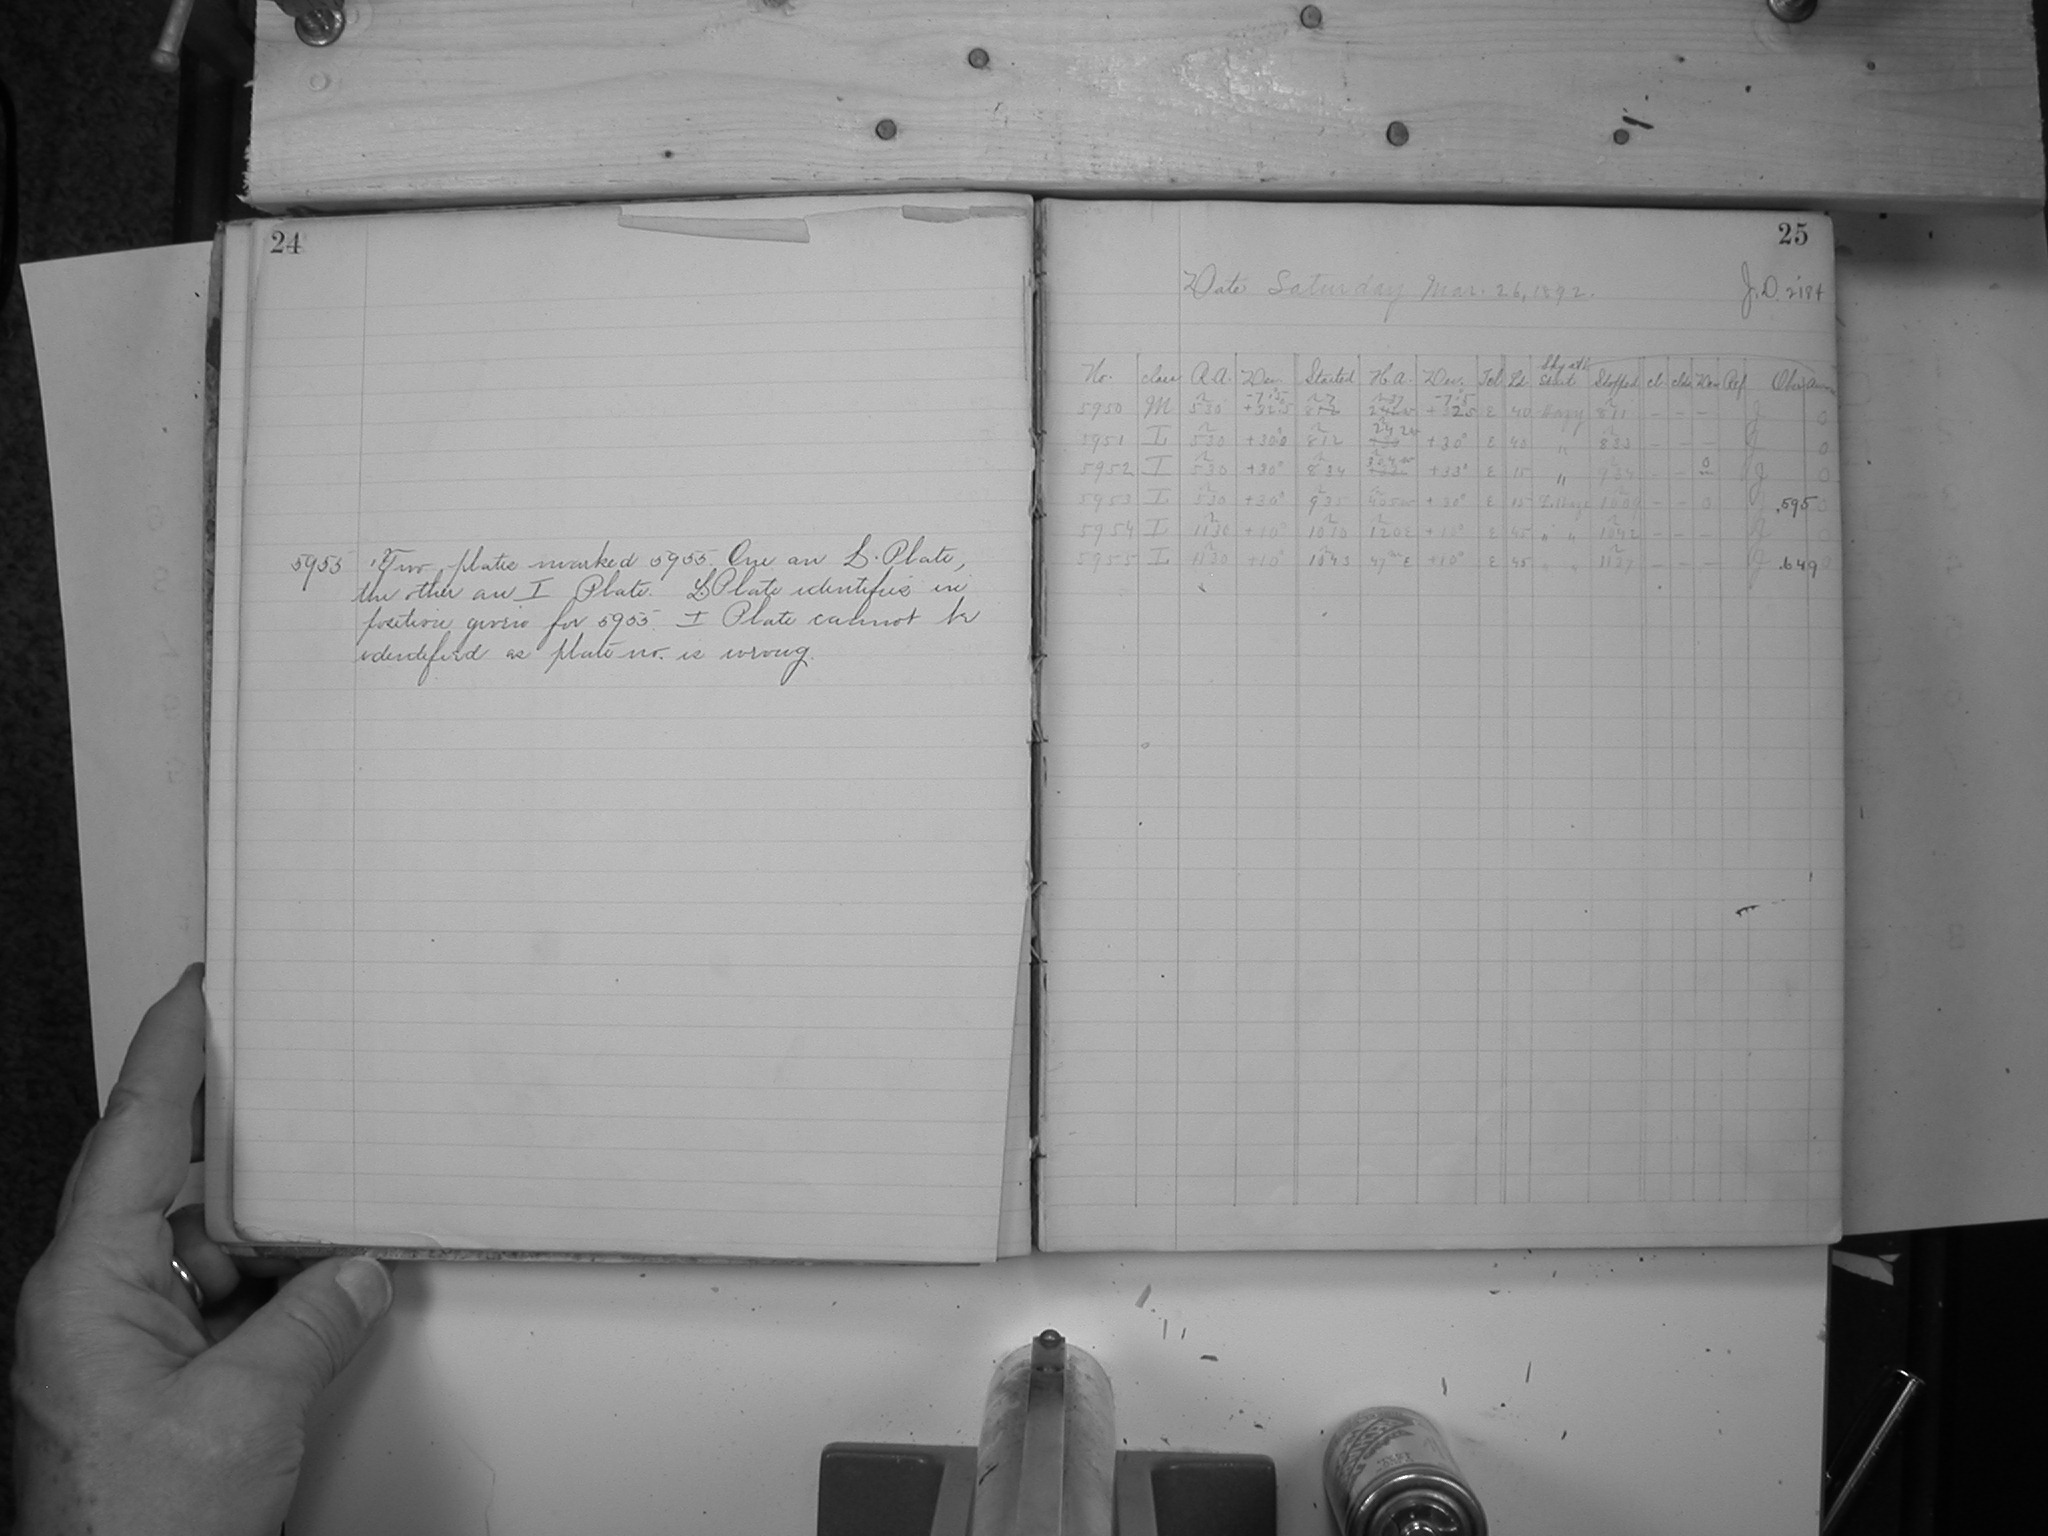 24
5955 Two plates marked 5955. One an L. Plate,
the other an I Plate. L Plate identifies in
position given for 5955. I Plate cannot be
identified as plate no. is wrong.
25
Date Saturday Mar. 26, 1892.
J. D. 2184
No. class R.A. Dec. Started H.A. Dec. Tel Ld Sky at Start Stopped cl. clds Dew Ref Obs.
5950 M 5 30 E 40 Hazy 8 11 – – – J 0
5951 I 5 30 +30° 8 12 +30° E 40 " 8 33 – – – J 0
5952 I 5 30 +30° 8 34 E 15 " 9 34 – – 0 J 0
5953 I 5 30 +30° 9 35 +30° E 15 – – 0 .595
5954 I 11 30 +10° 10 10 1 20 E +10° E 45 " " 10 42 – – – J
5955 I 11 30 +10° 10 43 47 E +10° E 45 " " – – – J .649